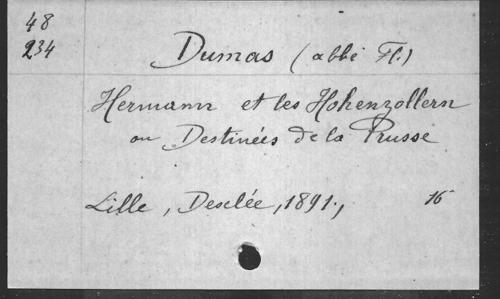 48
234
Dumas (abbé Fl.)
Hermann et les Hohenzollern
ou Destinées de la Prusse
Lille, Desclée, 1891., 16°